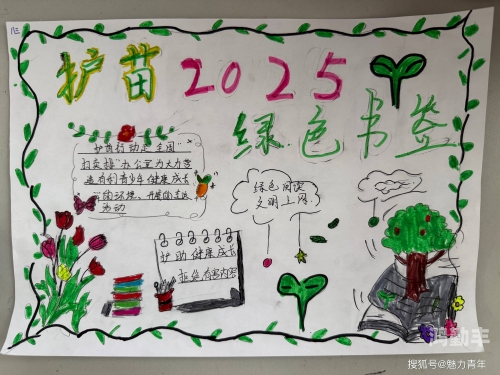 护苗2025
绿色书签
"护苗行动是全国"
扫黄打"办公室为大力营
造有利青少年健康成长
的环境，开展的专项
活动
绿色阅读
文明上网。
护助健康成长
拒绝有害内容
鸿勤丰
搜狐号@魅力青年